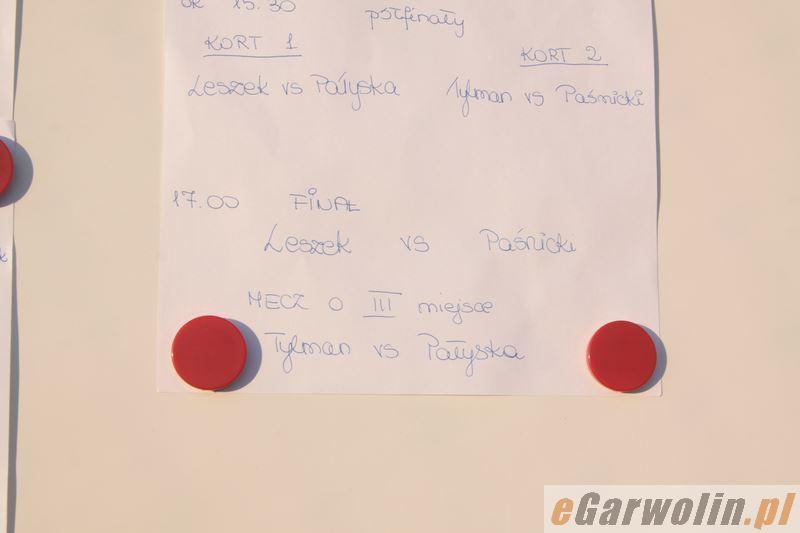 ok 15.30 półfinały
KORT 1 KORT 2
Leszek vs Pałyska Tylman vs Paśnicki
17.00 FINAŁ
Leszek vs Paśnicki
MECZ O III miejsce
Tylman vs Pałyska
eGarwolin.pl